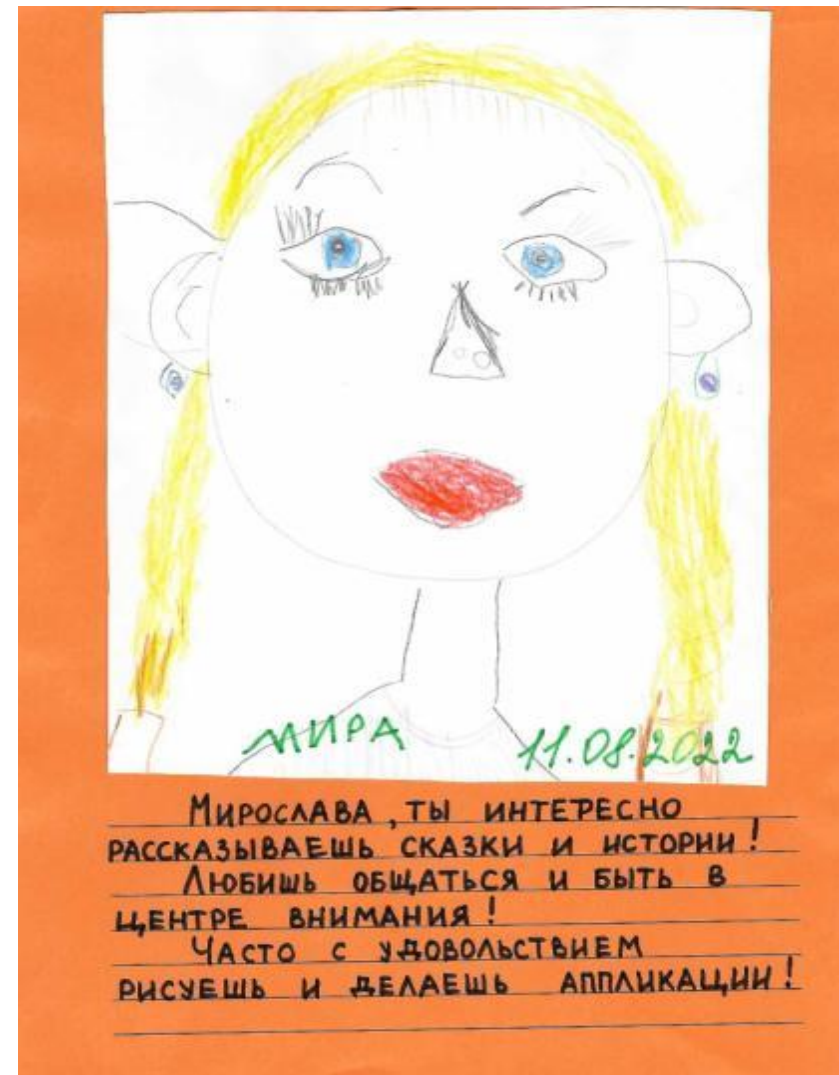 МИРА 11.08.2022
Мирослава, ты интересно
рассказываешь сказки и истории!
Любишь общаться и быть в
центре внимания!
Часто с удовольствием
рисуешь и делаешь аппликации!